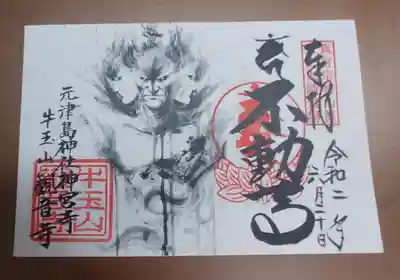 奉拝
令和二年
六月二十日
不動尊
元津島神社神宮寺
牛玉山観音寺
牛玉山